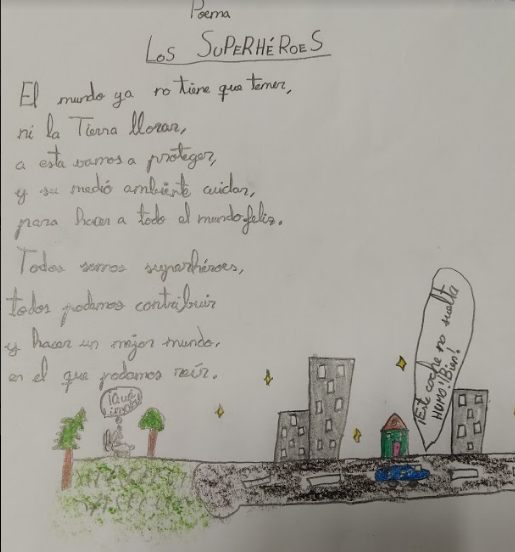 Poema
LOS SUPERHÉROES
El mundo ya no tiene que temer,
ni la Tierra llorar,
a esta vamos a proteger,
y su medio ambiente cuidar,
para hacer a todo el mundo feliz.
Todos somos superhéroes,
todos podemos contribuir
y hacer un mejor mundo,
en el que podamos reír.
¡Qué
¡Este coche no suelta
HUMO! ¡Bien!